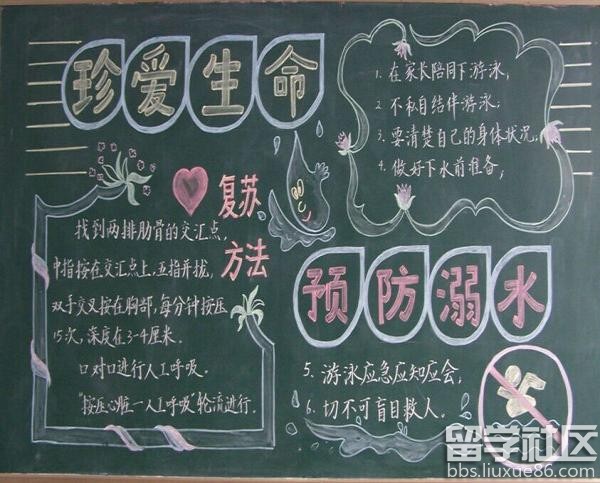 珍爱生命
1. 在家长陪同下游泳,
2. 不私自结伴游泳;
3. 要清楚自己的身体状况;
4. 做好下水前准备,
复苏
方法
找到两排肋骨的交汇点,
中指按在交汇点上,五指并拢,
双手交叉按在胸部,每分钟按压
15次,深度在3-4厘米.
口对口进行人工呼吸.
"按压心脏一人工呼吸"轮流进行.
预防溺水
5. 游泳应急应知应会,
6. 切不可盲目救人.
留学社区
bbs.liuxue86.com